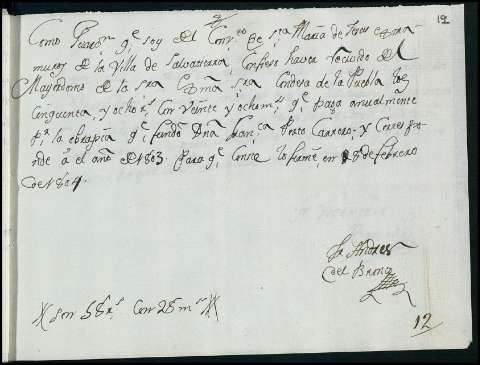 12
Como Guar.n q.e soy del Conv.to de S.ta Maria de Jesus extra
muros de la Villa de Salvatierra, Confieso haver recivido del
Mayordomo de la Exma Señora Condesa de la Puebla los
Cinquenta, y ocho r.s Con veinte y ocho m.s q.e paga anualmente
p.r la obra pia q.e fundó Dña Fran.ca Porto Carrero, y Corrèspon
de á el año de 1803. Para q.e Conste lo firmé, en 18 de febrero
de 1804.
Fr. Andres
del Bronco
Son 58 r.s Con 28 m.s
12